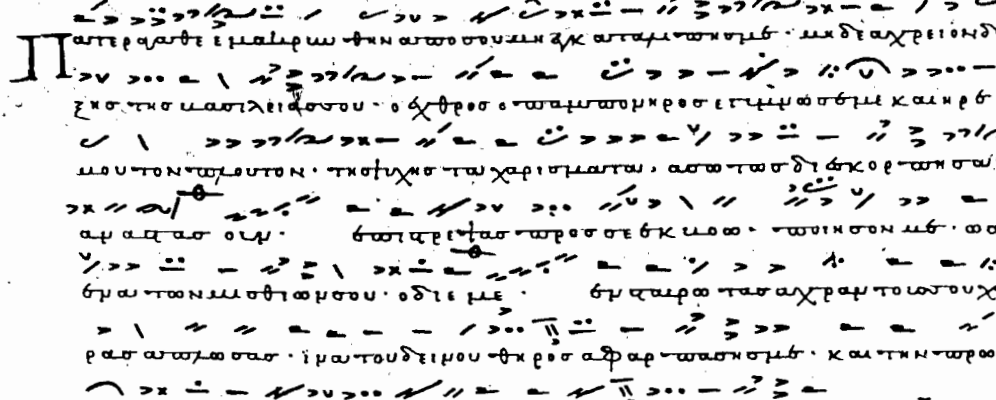 Πατερ αγαθε εμακρυνθην απο σου μη εγκαταλιπης με · μηδε αχρειον δ
ξης της βασιλειας σου · ο εχθρος ο παμπονηρος εγυμνωσε με και ηρε
μου τον πλουτον · της ψυχης τα χαρισματα · ασωτως διεσκορπησα
αναστας ουν · επιστρεψας προς σε εκβοω · ποιησον με · ως
ενα των μισθιων σου · ο δι εμε · εν σταυρω τας αχραντους σου χ
ρας απλωσας · ινα του δεινου θηρος αφαρπασης με · και την πρω